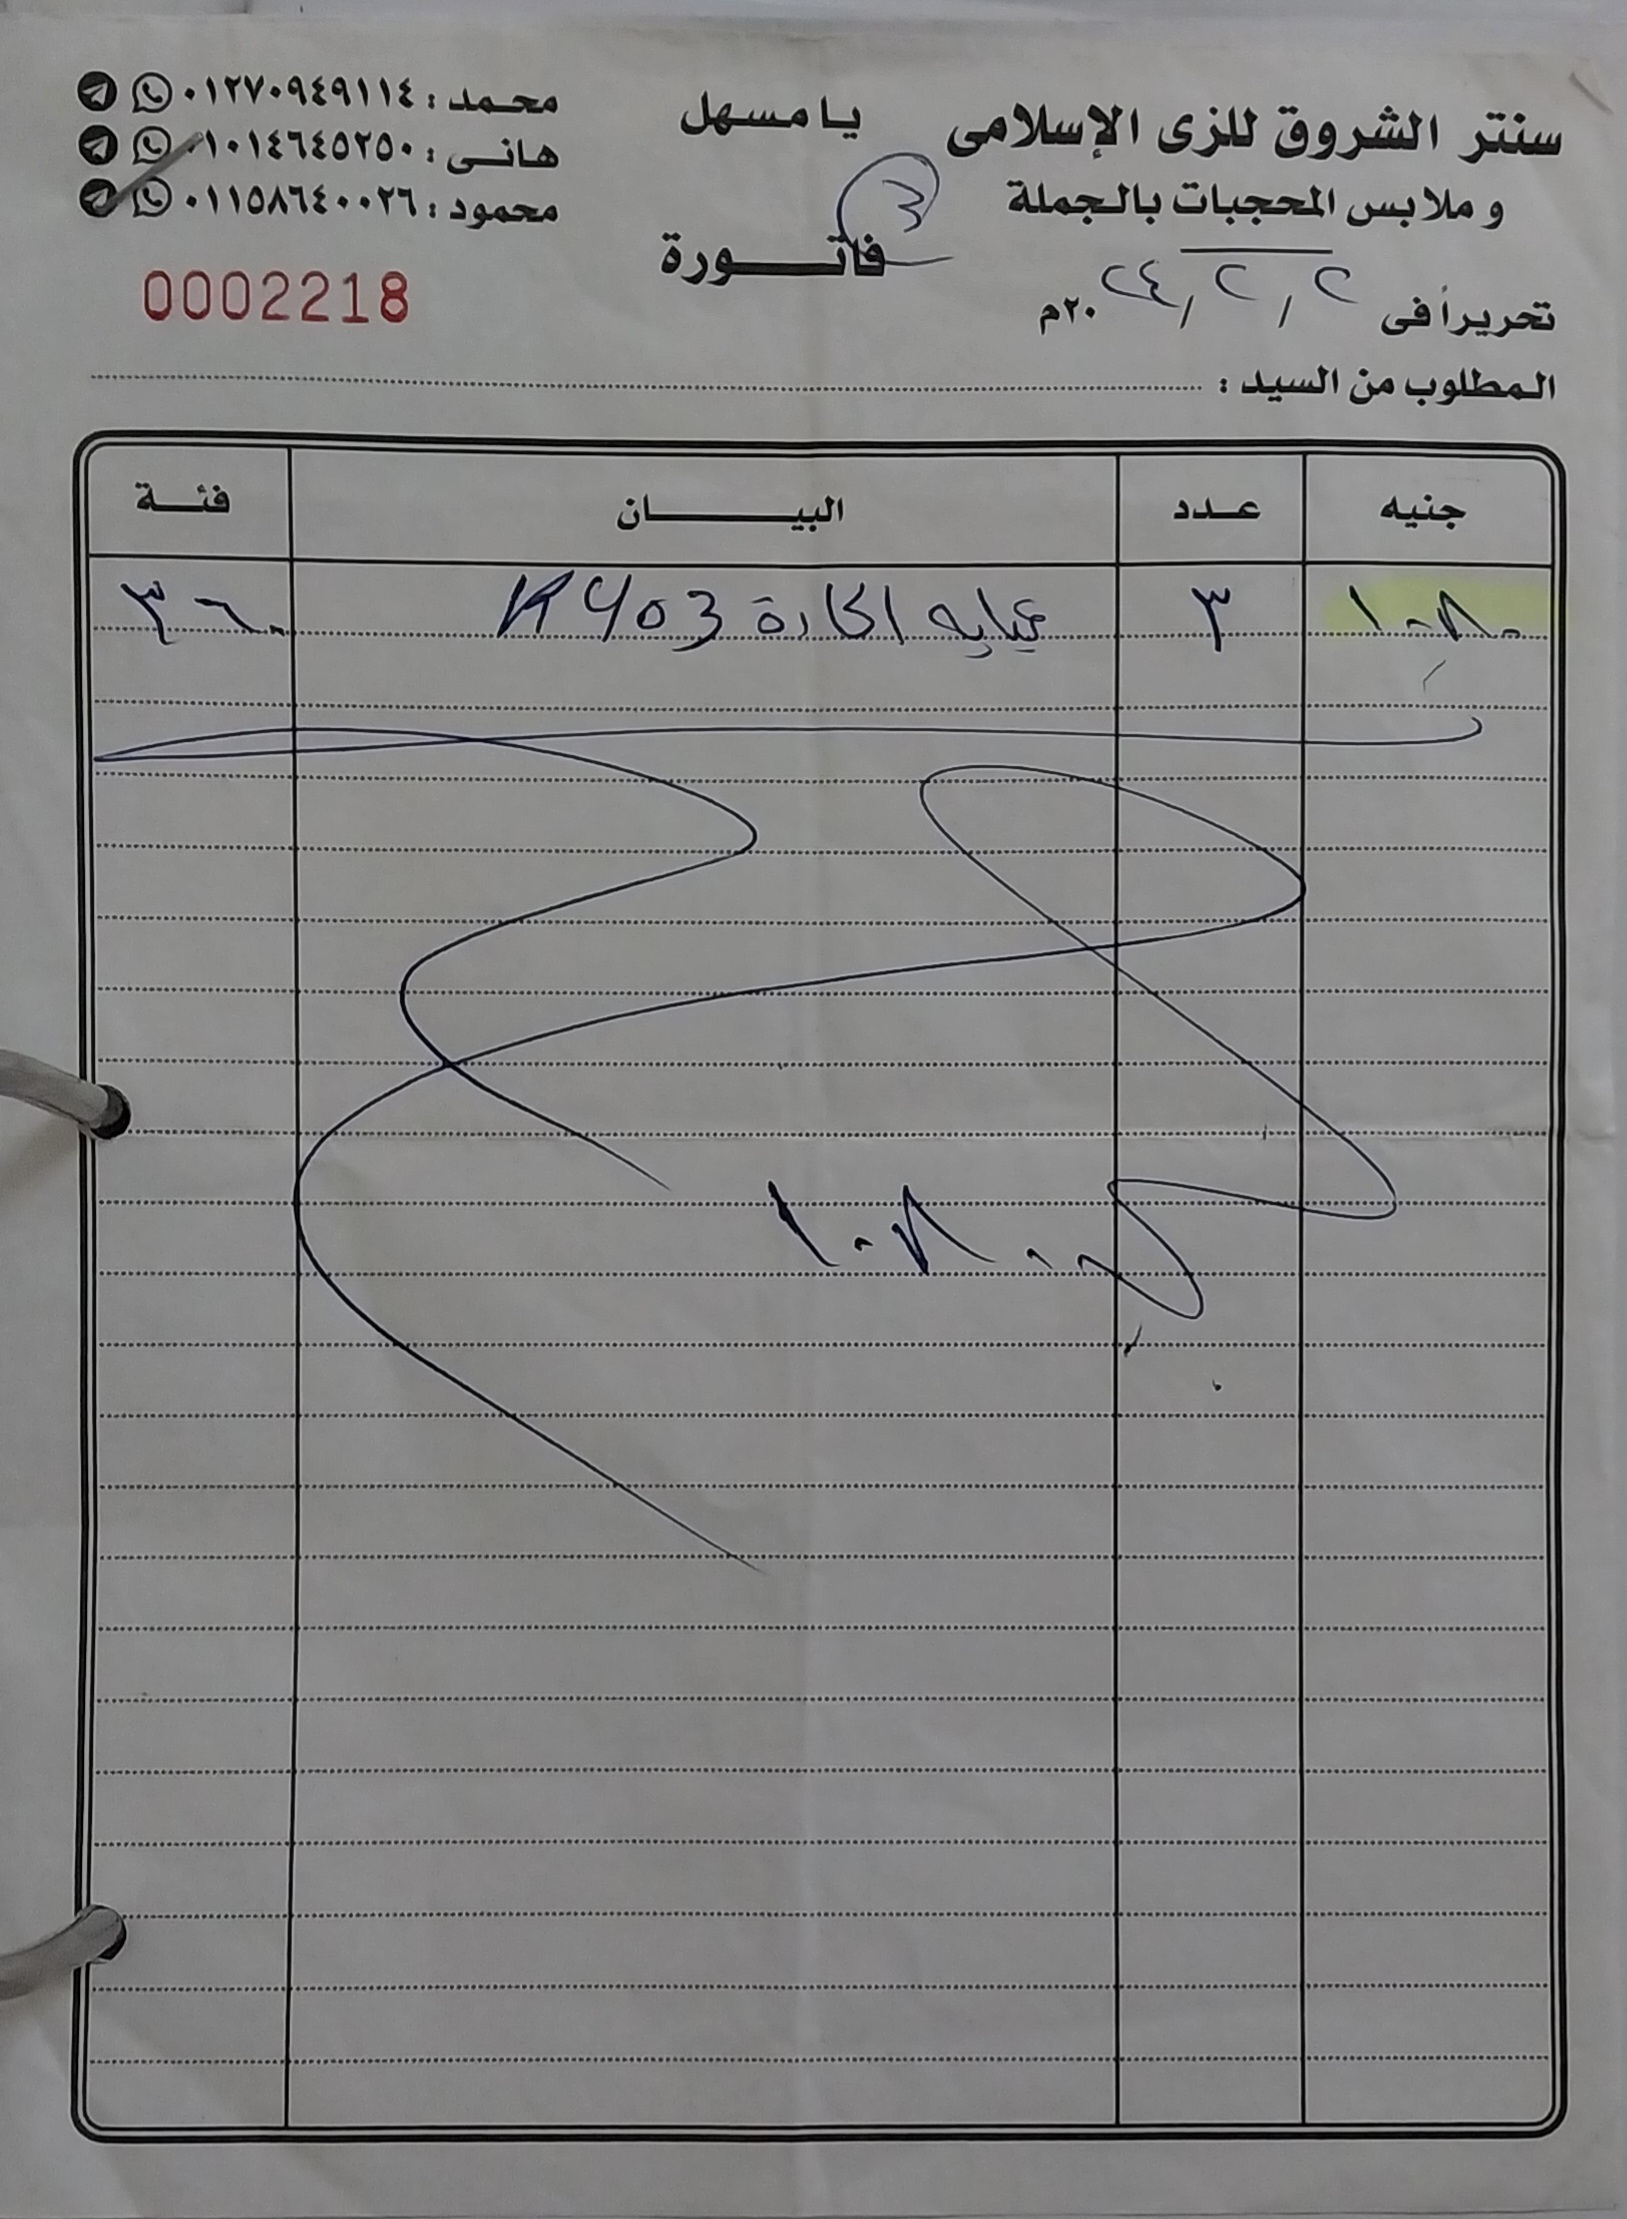 سنتر الشروق للزى الإسلامى
وملابس المحجبات بالجملة
يا مسهل
محمد : ٠١٢٧٠٩٤٩١١٤
هانى : ٠١٠١٤٦٤٥٢٥٠
محمود : ٠١١٥٨٦٤٠٠٢٦
3
فاتورة
0002218
تحريراً فى ٢ / ٢ / ٢٠٢٤م
المطلوب من السيد :
جنيه عدد البيان فئة
١٠٨٠ ٣ عبايه K403 ٣٦٠
١٠٨٠